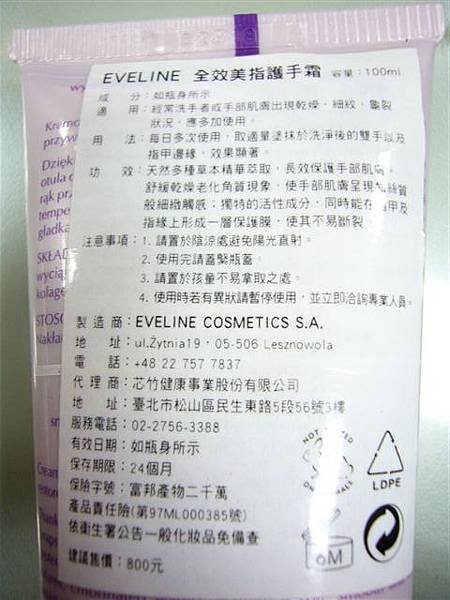 EVELINE 全效美指護手霜 容量：100ml
成　分：如瓶身所示
適　用：經常洗手者或手部肌膚出現乾燥、細紋、龜裂
狀況，應多加使用。
用　法：每日多次使用，取適量塗抹於洗淨後的雙手以及
指甲邊緣，效果顯著。
功　效：天然多種草本精華萃取，長效保護手部肌膚，
舒緩乾燥老化角質現象，使手部肌膚呈現如絲質
般細緻觸感；獨特的活性成分，同時能在指甲及
指緣上形成一層保護膜，使其不易斷裂。
注意事項：1. 請置於陰涼處避免陽光直射。
2. 使用完請蓋緊瓶蓋。
3. 請置於孩童不易拿取之處。
4. 使用時若有異狀請暫停使用，並立即洽詢專業人員。
製 造 商：EVELINE COSMETICS S.A.
地　址：ul.Żytnia19，05-506 Lesznowola
電　話：+48 22 757 7837
代 理 商：芯竹健康事業股份有限公司
地　址：臺北市松山區民生東路5段56號3樓
服務電話：02-2756-3388
有效日期：如瓶身所示
保存期限：24個月
保險字號：富邦產物二千萬
產品責任險(第97ML000385號)
依衛生署公告一般化妝品免備查
建議售價：800元
LDPE
6M